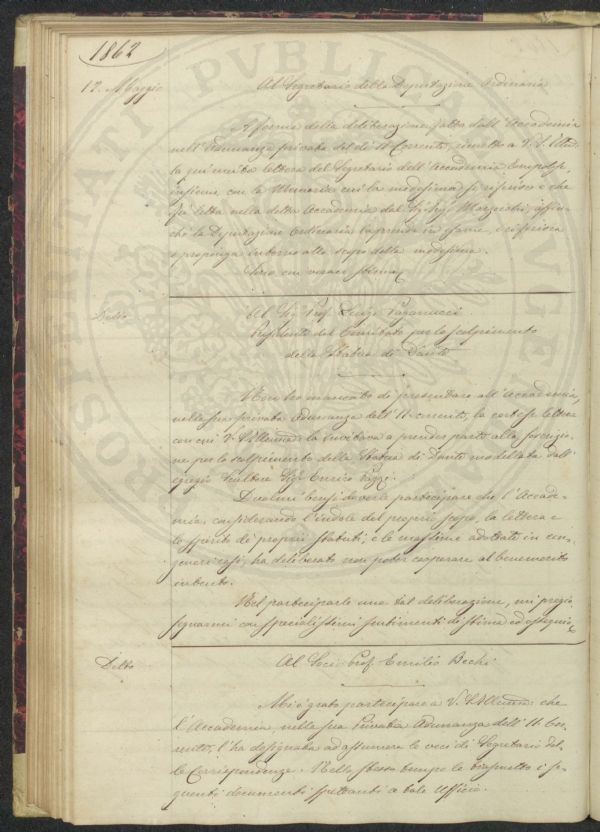 1862
17. Maggio
Al Segretario della Deputazione Ordinaria
A forma della deliberazione fatta dall'Accademia
nell'Adunanza privata del dì 11 Corrente, rimetto a V. S. Illma
la qui unita lettera del Segretario dell'Accademia Empolese,
insieme con la Memoria cui la medesima si riferisce e che
fu letta nella detta Accademia dal Sig.
chè la Deputazione Ordinaria la prenda in esame, e ci riferisca
e proponga intorno allo scopo della medesima.
Sono con verace stima
Detto
Al Sig. Prof. Luigi Paganucci
Presidente del Comitato per lo scolpimento
della Statua di Dante
Non ho mancato di presentare all'Accademia,
nella sua privata Adunanza dell'11 corrente, la cortese lettera
con cui V. S. Illma la invitava a prender parte alla soscrizio-
ne per lo scolpimento della Statua di Dante modellata dall'
egregio Scultore Sig. Enrico Pazzi.
Duolmi bensì doverle partecipare che l'Accade-
mia, considerando l'indole del proprio scopo, la lettera e
lo spirito de' proprii Statuti, e le massime adottate in con-
generi casi, ha deliberato non poter cooperare al benemerito
intento.
Nel parteciparle una tal deliberazione, mi pregio
segnarmi con specialissimi sentimenti di stima ed ossequio
Detto
Al Socio Prof. Emilio Bechi
Mi è grato partecipare a V. S. Illma che
l'Accademia, nella sua Privata Adunanza dell'11 Cor-
rente, l'ha designata ad assumere le veci di Segretario del-
le Corrispondenze. Nello stesso tempo le trasmetto i se-
guenti documenti spettanti a tale Ufficio.